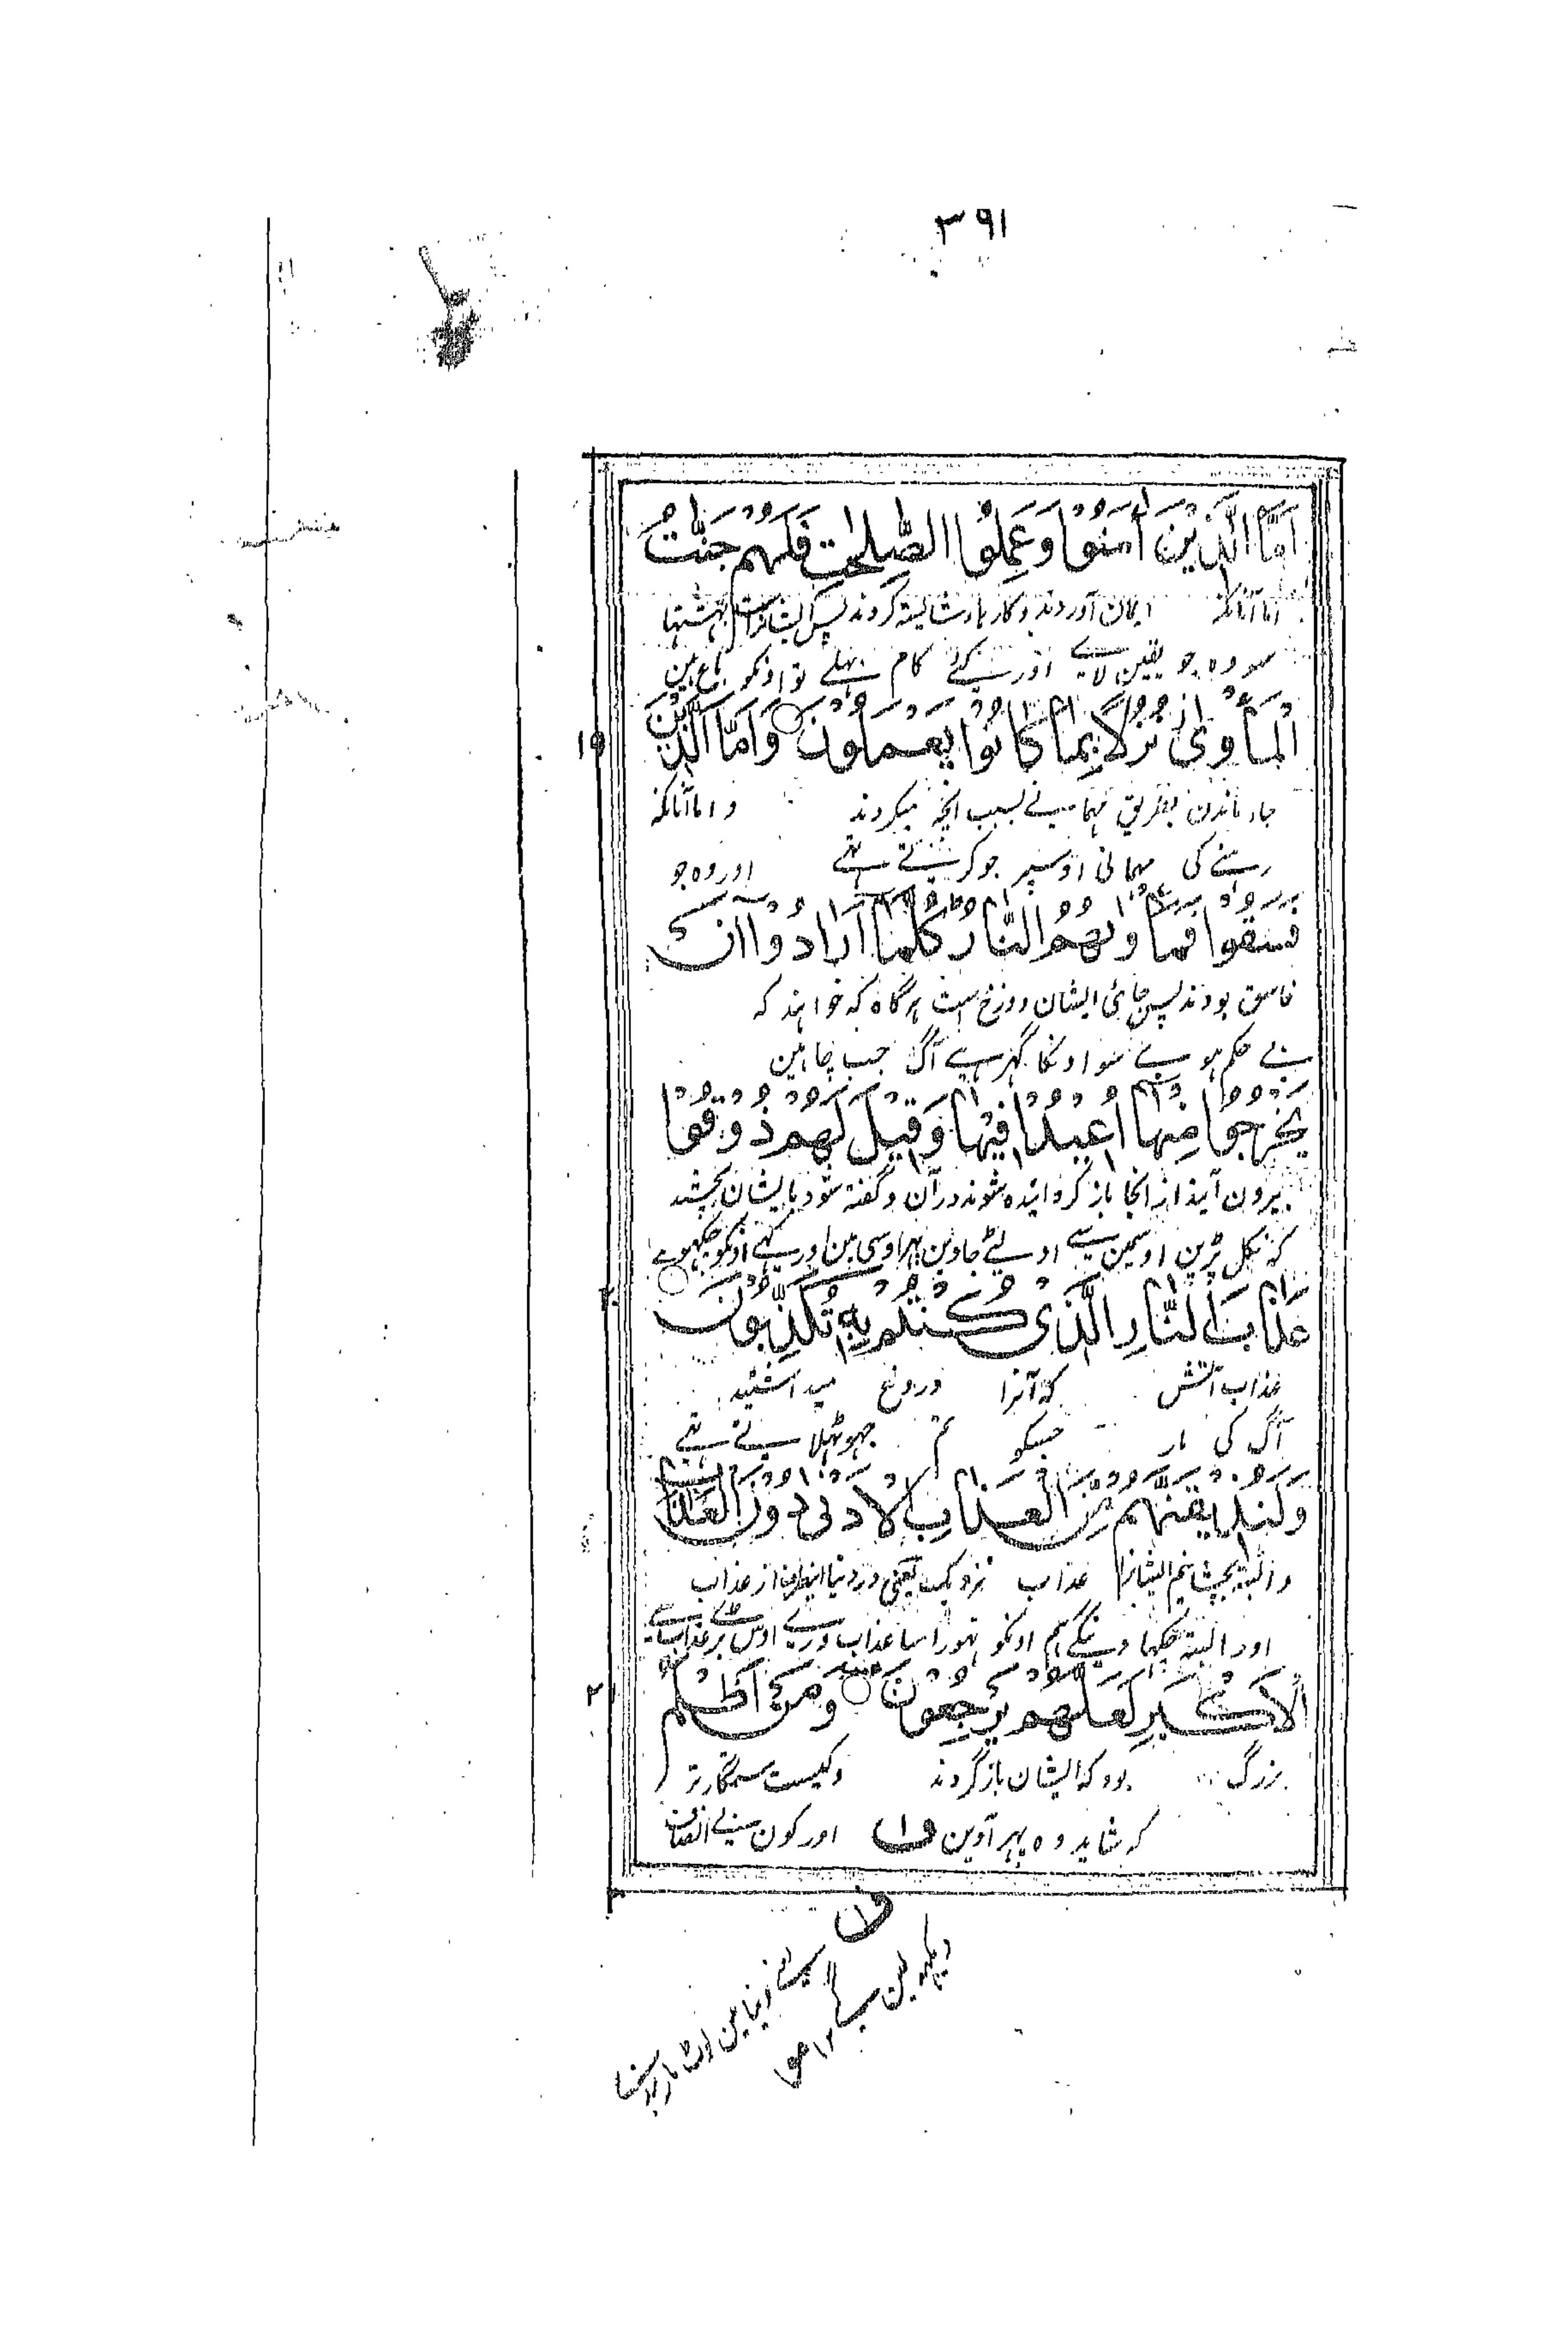 ۳۹۱
اَمَّا الَّذِيْنَ اٰمَنُوْا وَعَمِلُوا الصّٰلِحٰتِ فَلَهُمْ جَنّٰتُ
اما آنانکہ ایمان آوردند و کارہاء شایستہ کردند پس ایشانراست بہشتہا
سو وہ جو یقین لائے اور کئے کام بہلے تو اونکو باغ ہین
الْمَأْوٰى نُزُلًا بِمَا كَانُوْا يَعْمَلُوْنَ وَاَمَّا الَّذِيْنَ
۱۹
جاء ماندن بطریق مہمانے بسبب انچہ میکردند و اما آنانکہ
رہنے کی مہمانی اوسپر جو کرتے تہے اور وہ جو
فَسَقُوْا فَمَأْوٰىهُمُ النَّارُ كُلَّمَا اَرَادُوْا اَنْ
فاسق بودند پس جائی ایشان دوزخ ست ہرگاہ کہ خواہند کہ
بے حکم ہوے سو اونکا گہر ہے آگ جب چاہین
يَخْرُجُوْا مِنْهَا اُعِيْدُوْا فِيْهَا وَقِيْلَ لَهُمْ ذُوْقُوْا
بیرون آیند از انجا باز گردانیدہ شوند در آن و گفتہ شود بایشان بچشید
کہ نکل پڑین اوسمین سے اولٹے جاوین پہر اوسی مین اور کہے اونکو چکہو
۲۰
عَذَابَ النَّارِ الَّذِيْ كُنْتُمْ بِهٖ تُكَذِّبُوْنَ
عذاب آتش کہ آنرا دروغ میداشتید
آگ کی مار جسکو تم جہوٹہلاتے تہے
وَلَنُذِيْقَنَّهُمْ مِّنَ الْعَذَابِ الْاَدْنٰى دُوْنَ الْعَذَابِ
و البتہ بچشانیم ایشانرا عذاب نزدیک یعنی در دنیا از عذاب
اور البتہ چکہا دینگے ہم اونکو تہوڑا سا عذاب ورے اوس بڑے عذاب سے
الْاَكْبَرِ لَعَلَّهُمْ يَرْجِعُوْنَ وَمَنْ اَظْلَمُ
۲۱
بزرگ بود کہ ایشان باز گردند و کیست ستمگارتر
کہ شاید وہ پہر آوین ف۱ اور کون بے انصاف
ف۱
دنیا مین لوٹ مار
دیکہہ لین گے ۱۲